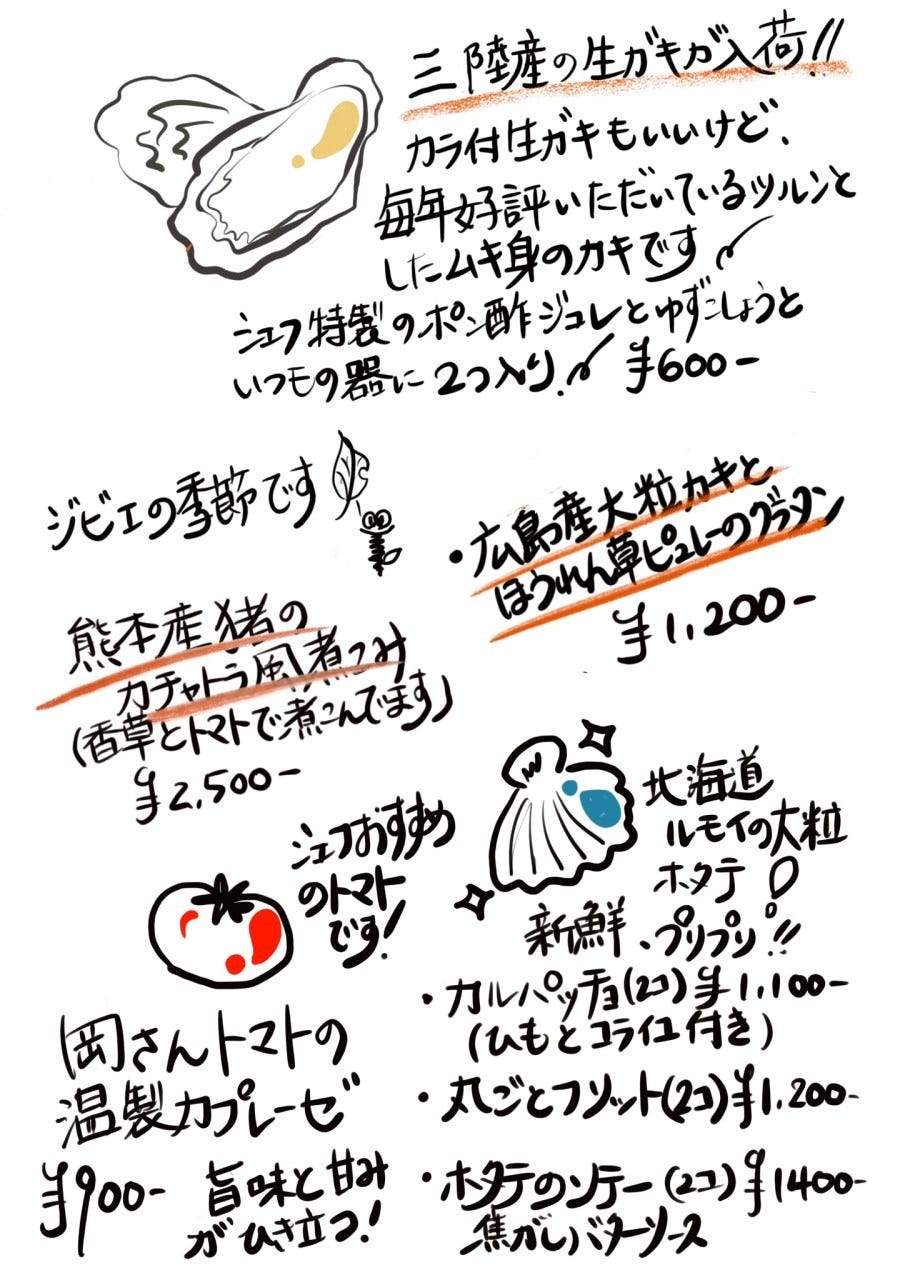 三陸産の生ガキが入荷!!
カラ付生ガキもいいけど、
毎年好評いただいているツルンと
したムキ身のカキです
シェフ特製のポン酢ジュレとゆずこしょうと
いつもの器に2つ入り! ¥600-
ジビエの季節です
熊本産猪の
カチャトラ風煮こみ
(香草とトマトで煮こんでます)
¥2,500-
・広島産大粒カキと
ほうれん草ピュレーのグラタン
¥1,200-
シェフおすすめ
のトマト
です!
岡さんトマトの
温製カプレーゼ
¥900- 旨味と甘み
がひき立つ!
北海道
ルモイの大粒
ホタテ
新鮮、プリプリ!!
・カルパッチョ(2コ) ¥1,100-
(ひもとコライユ付き)
・丸ごとフリット(2コ) ¥1,200-
・ホタテのソテー(2コ) ¥1400-
焦がしバターソース